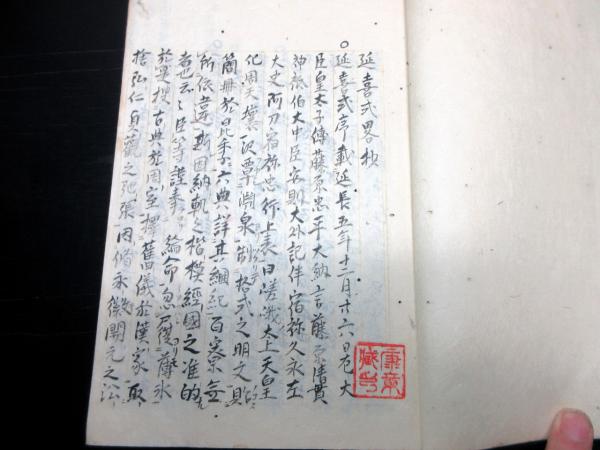 延喜式畧抄
○延喜式序載延長五年十二月廿六日左大
臣皇太子傅藤原忠平大納言藤原清貫
神祇伯大中臣安則大外記伴宿祢久永左
大史阿刀宿祢忠行上表曰嵯峨太上天皇
化周天壤 沢覃淵泉 制格式之明文
簡冊於 六典詳其綱紀百寮無
所依違斯固納軌之楷模經國之准的
者也云々臣等謹奉 綸命忽履薄氷
於是捜古典於周室擇舊儀於漢家取
捨弘仁貞觀之弛張因脩永徽開元之沿
康章
蔵書